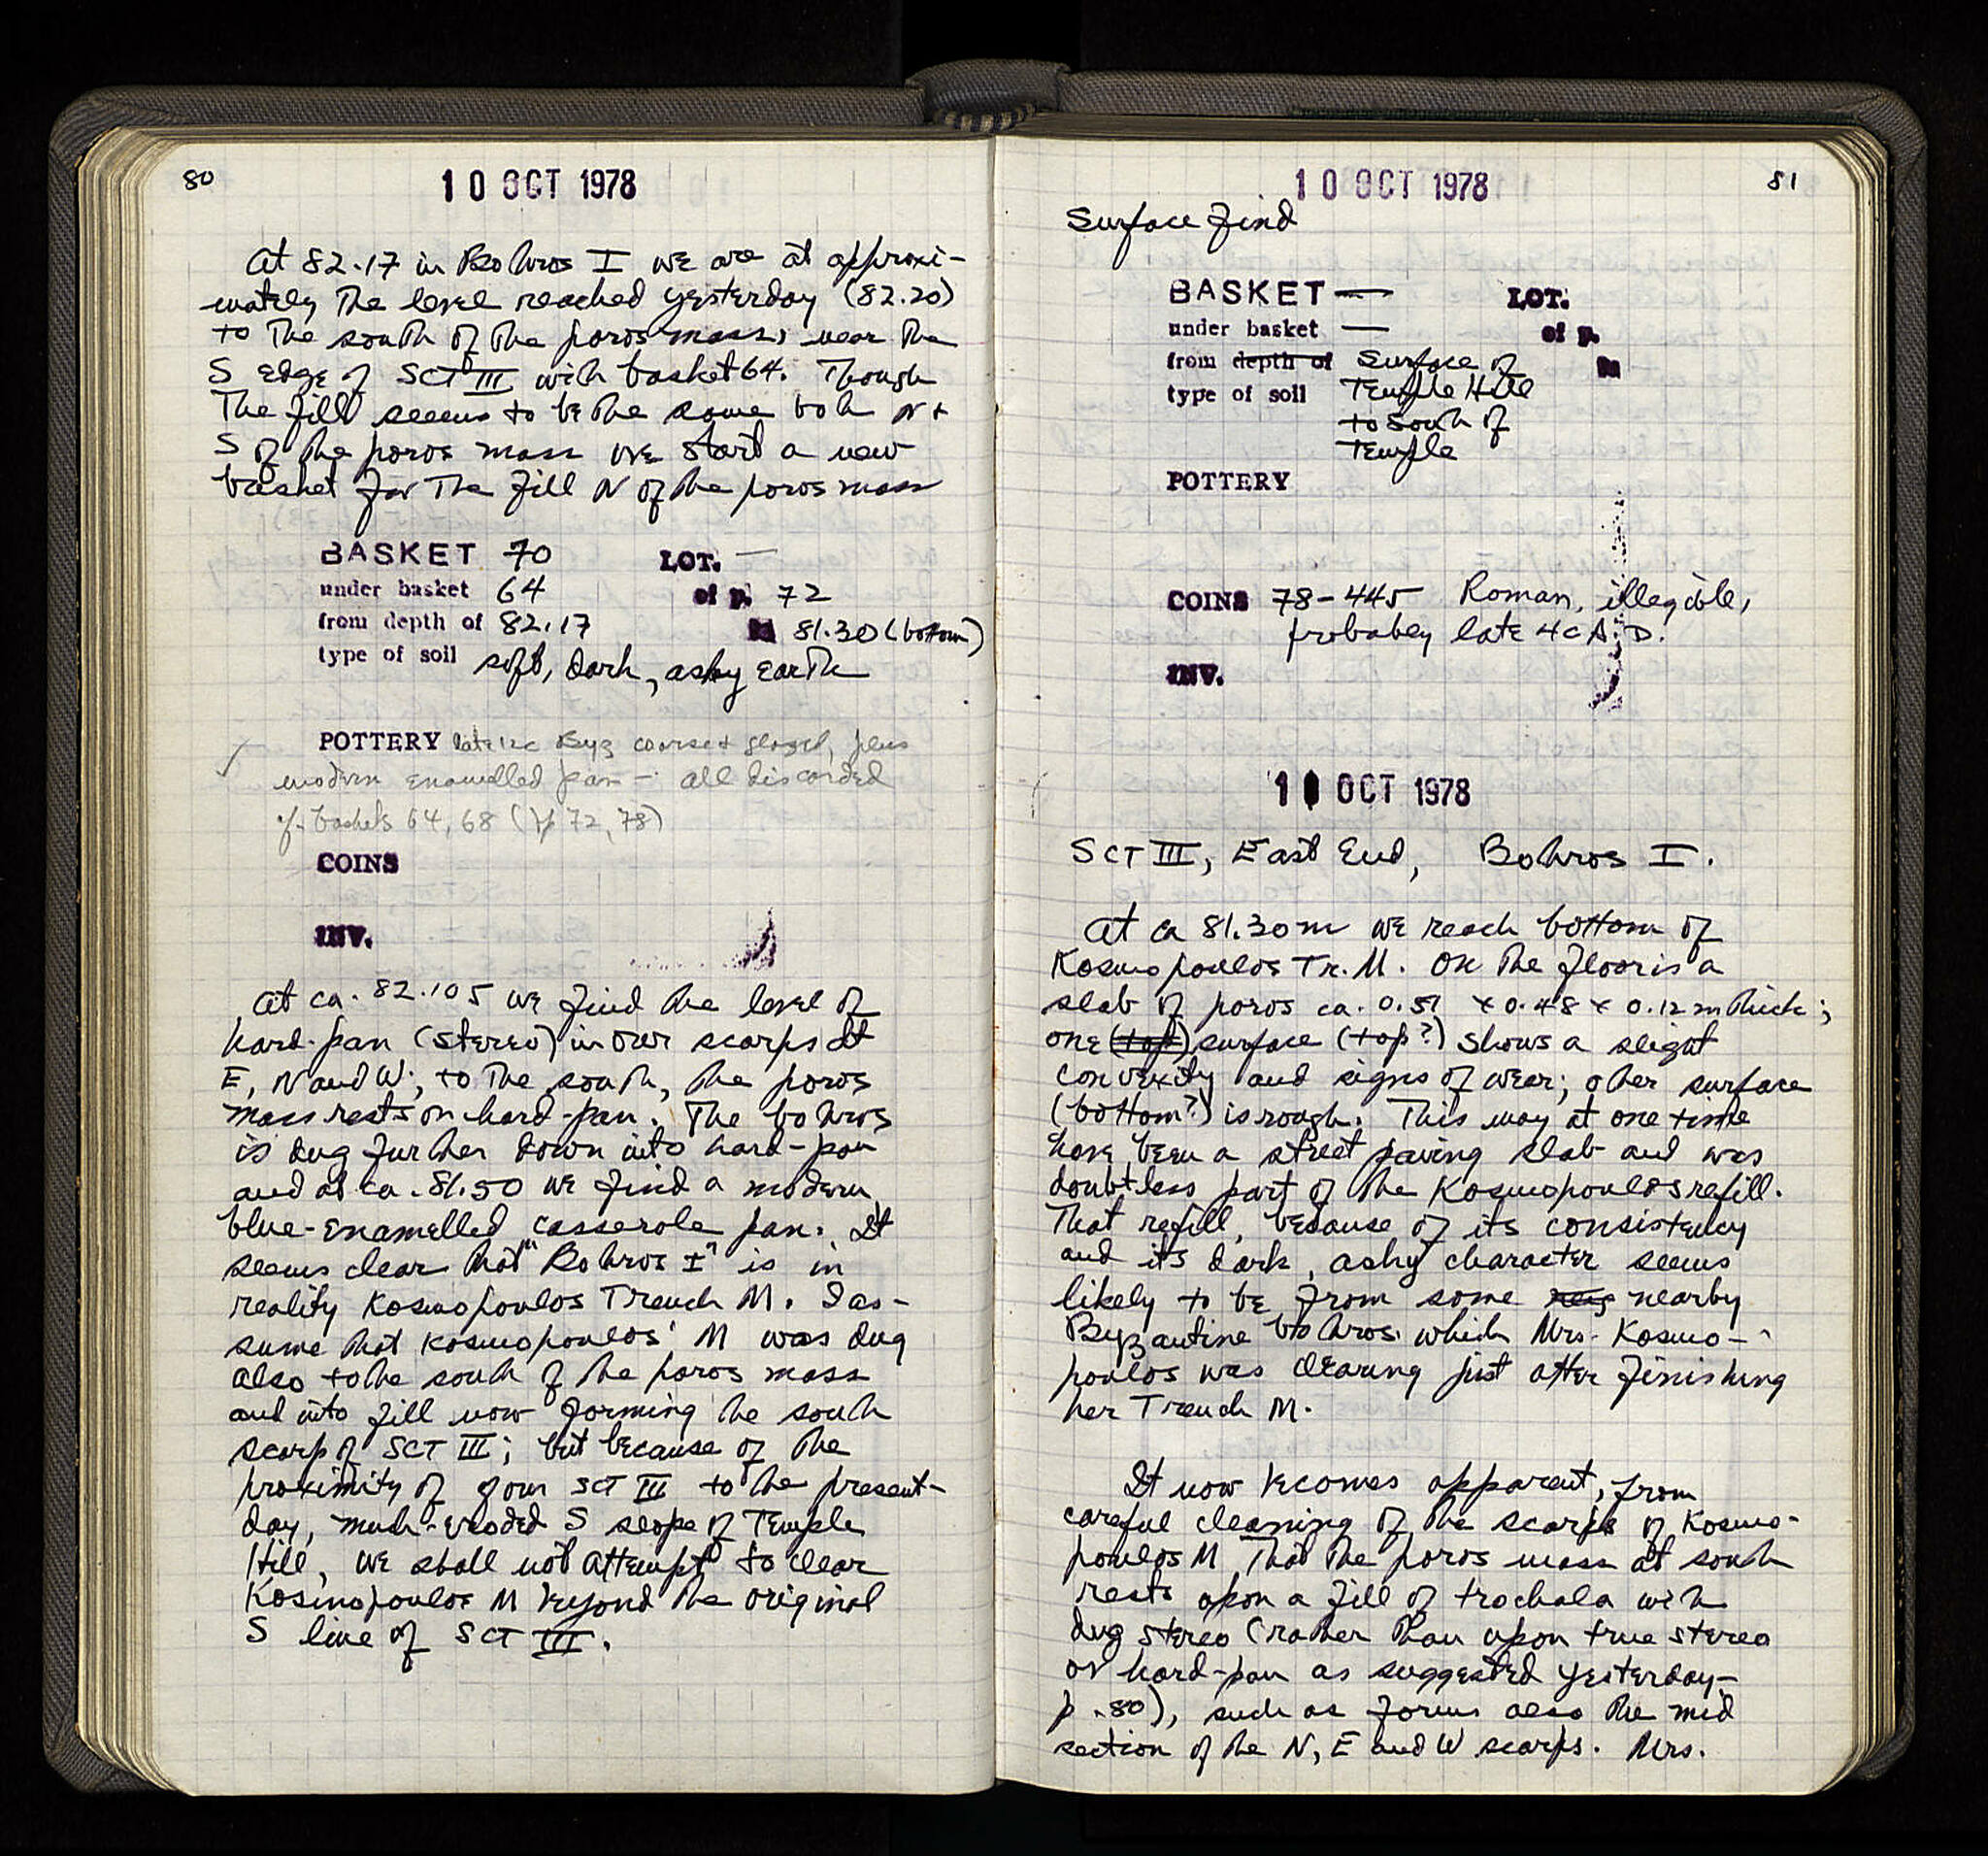 80
10 OCT 1978
At 82.17 in Bothros I we are at approxi-
mately the level reached yesterday (82.20)
to the south of the poros mass, near the
S edge of SCT III with basket 64. Though
the fill seems to be the same both N +
S of the poros mass we start a new
basket for the fill N of the poros mass
BASKET 70 LOT. —
under basket 64 of p. 72
from depth of 82.17 to 81.30 (bottom)
type of soil soft, dark, ashy earth
POTTERY late 12c Byz coarse + glazed, plus
modern enamelled pan — all discarded
cf. baskets 64, 68 (pp 72, 78)
COINS
INV.
At ca. 82.105 we find the level of
hard-pan (stereo) in our scarps at
E, N and W; to the south, the poros
mass rests on hard-pan. The bothros
is dug further down into hard-pan
and at ca. 81.50 we find a modern
blue-enamelled casserole pan. It
seems clear that "Bothros I" is in
reality Kosmopoulos Trench M. I as-
sume that Kosmopoulos' M was dug
also to the south of the poros mass
and into fill now forming the south
scarp of SCT III; but because of the
proximity of our SCT III to the present-
day, much-eroded S slope of Temple
Hill, we shall not attempt to clear
Kosmopoulos M beyond the original
S line of SCT III.
81
10 OCT 1978
Surface find
BASKET — LOT.
under basket — of p.
from depth of Surface of to
type of soil Temple Hill
to South of
Temple
POTTERY
COINS 78-445 Roman, illegible,
probably late 4c A.D.
INV.
11 OCT 1978
SCT III, East End, Bothros I.
At ca 81.30m we reach bottom of
Kosmopoulos Tr. M. On the floor is a
slab of poros ca. 0.51 x 0.48 x 0.12m thick;
one (top) surface (top?) shows a slight
convexity and signs of wear; other surface
(bottom?) is rough. This may at one time
have been a street paving slab and was
doubtless part of the Kosmopoulos refill.
That refill, because of its consistency
and its dark, ashy character seems
likely to be from some neig nearby
Byzantine bothros which Mrs. Kosmo-
poulos was clearing just after finishing
her Trench M.
It now becomes apparent, from
careful cleaning of the scarps of Kosmo-
poulos M that the poros mass at south
rests upon a fill of trochala with
dug stereo (rather than upon true stereo
or hard-pan as suggested yesterday—
p. 80), such as forms also the mid
section of the N, E and W scarps. Mrs.